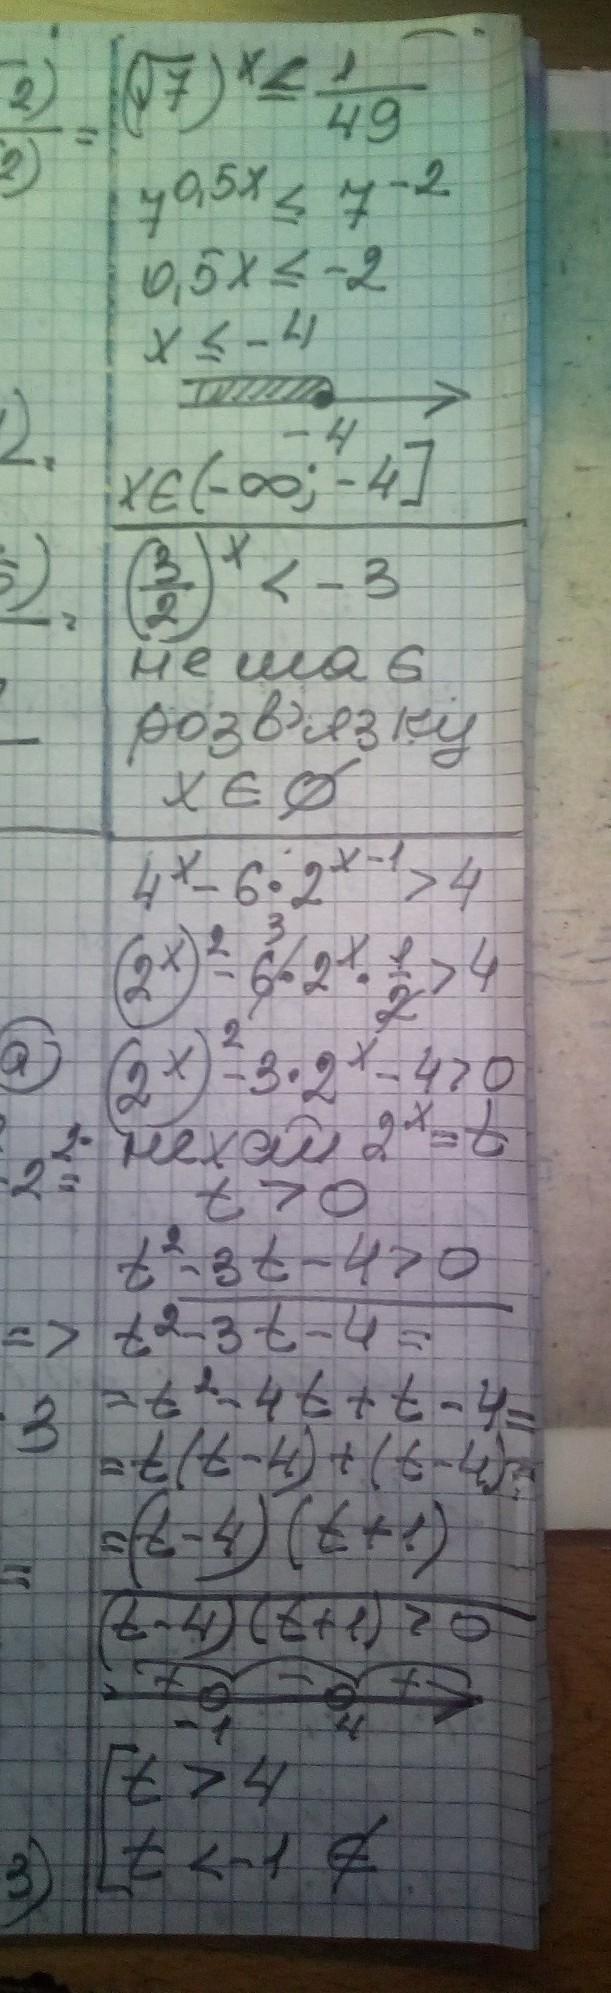 (√7)^x ≤ 1/49
7^0,5x ≤ 7^-2
0,5x ≤ -2
x ≤ -4
-4
x∈(-∞; -4]
(3/2)^x < -3
не має
розв'язку
x ∈ ∅
4^x - 6·2^x-1 > 4
(2^x)^2 - 6·2^x · 1/2 > 4
3
(2^x)^2 - 3·2^x - 4 > 0
нехай 2^x = t
t > 0
t^2 - 3t - 4 > 0
=> t^2 - 3t - 4 =
= t^2 - 4t + t - 4 =
= t(t-4) + (t-4) =
= (t-4)(t+1)
(t-4)(t+1) > 0
+ - +
-1 4
t > 4
t < -1 ∉